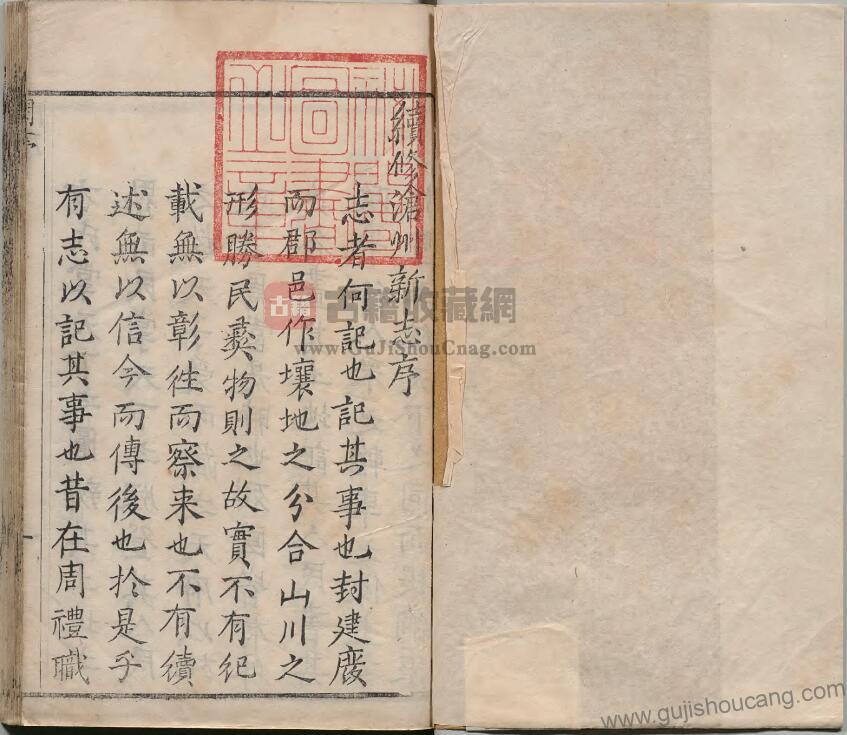 續修滄州新志序
志者何記也記其事也封建廢
而郡邑作壤地之分合山川之
形勝民彜物則之故實不有紀
載無以彰徃而察来也不有續
述無以信今而傳後也扵是乎
有志以記其事也昔在周禮職
古籍
古籍收藏網
www.GuJiShouCnag.com
www.gujishoucang.com